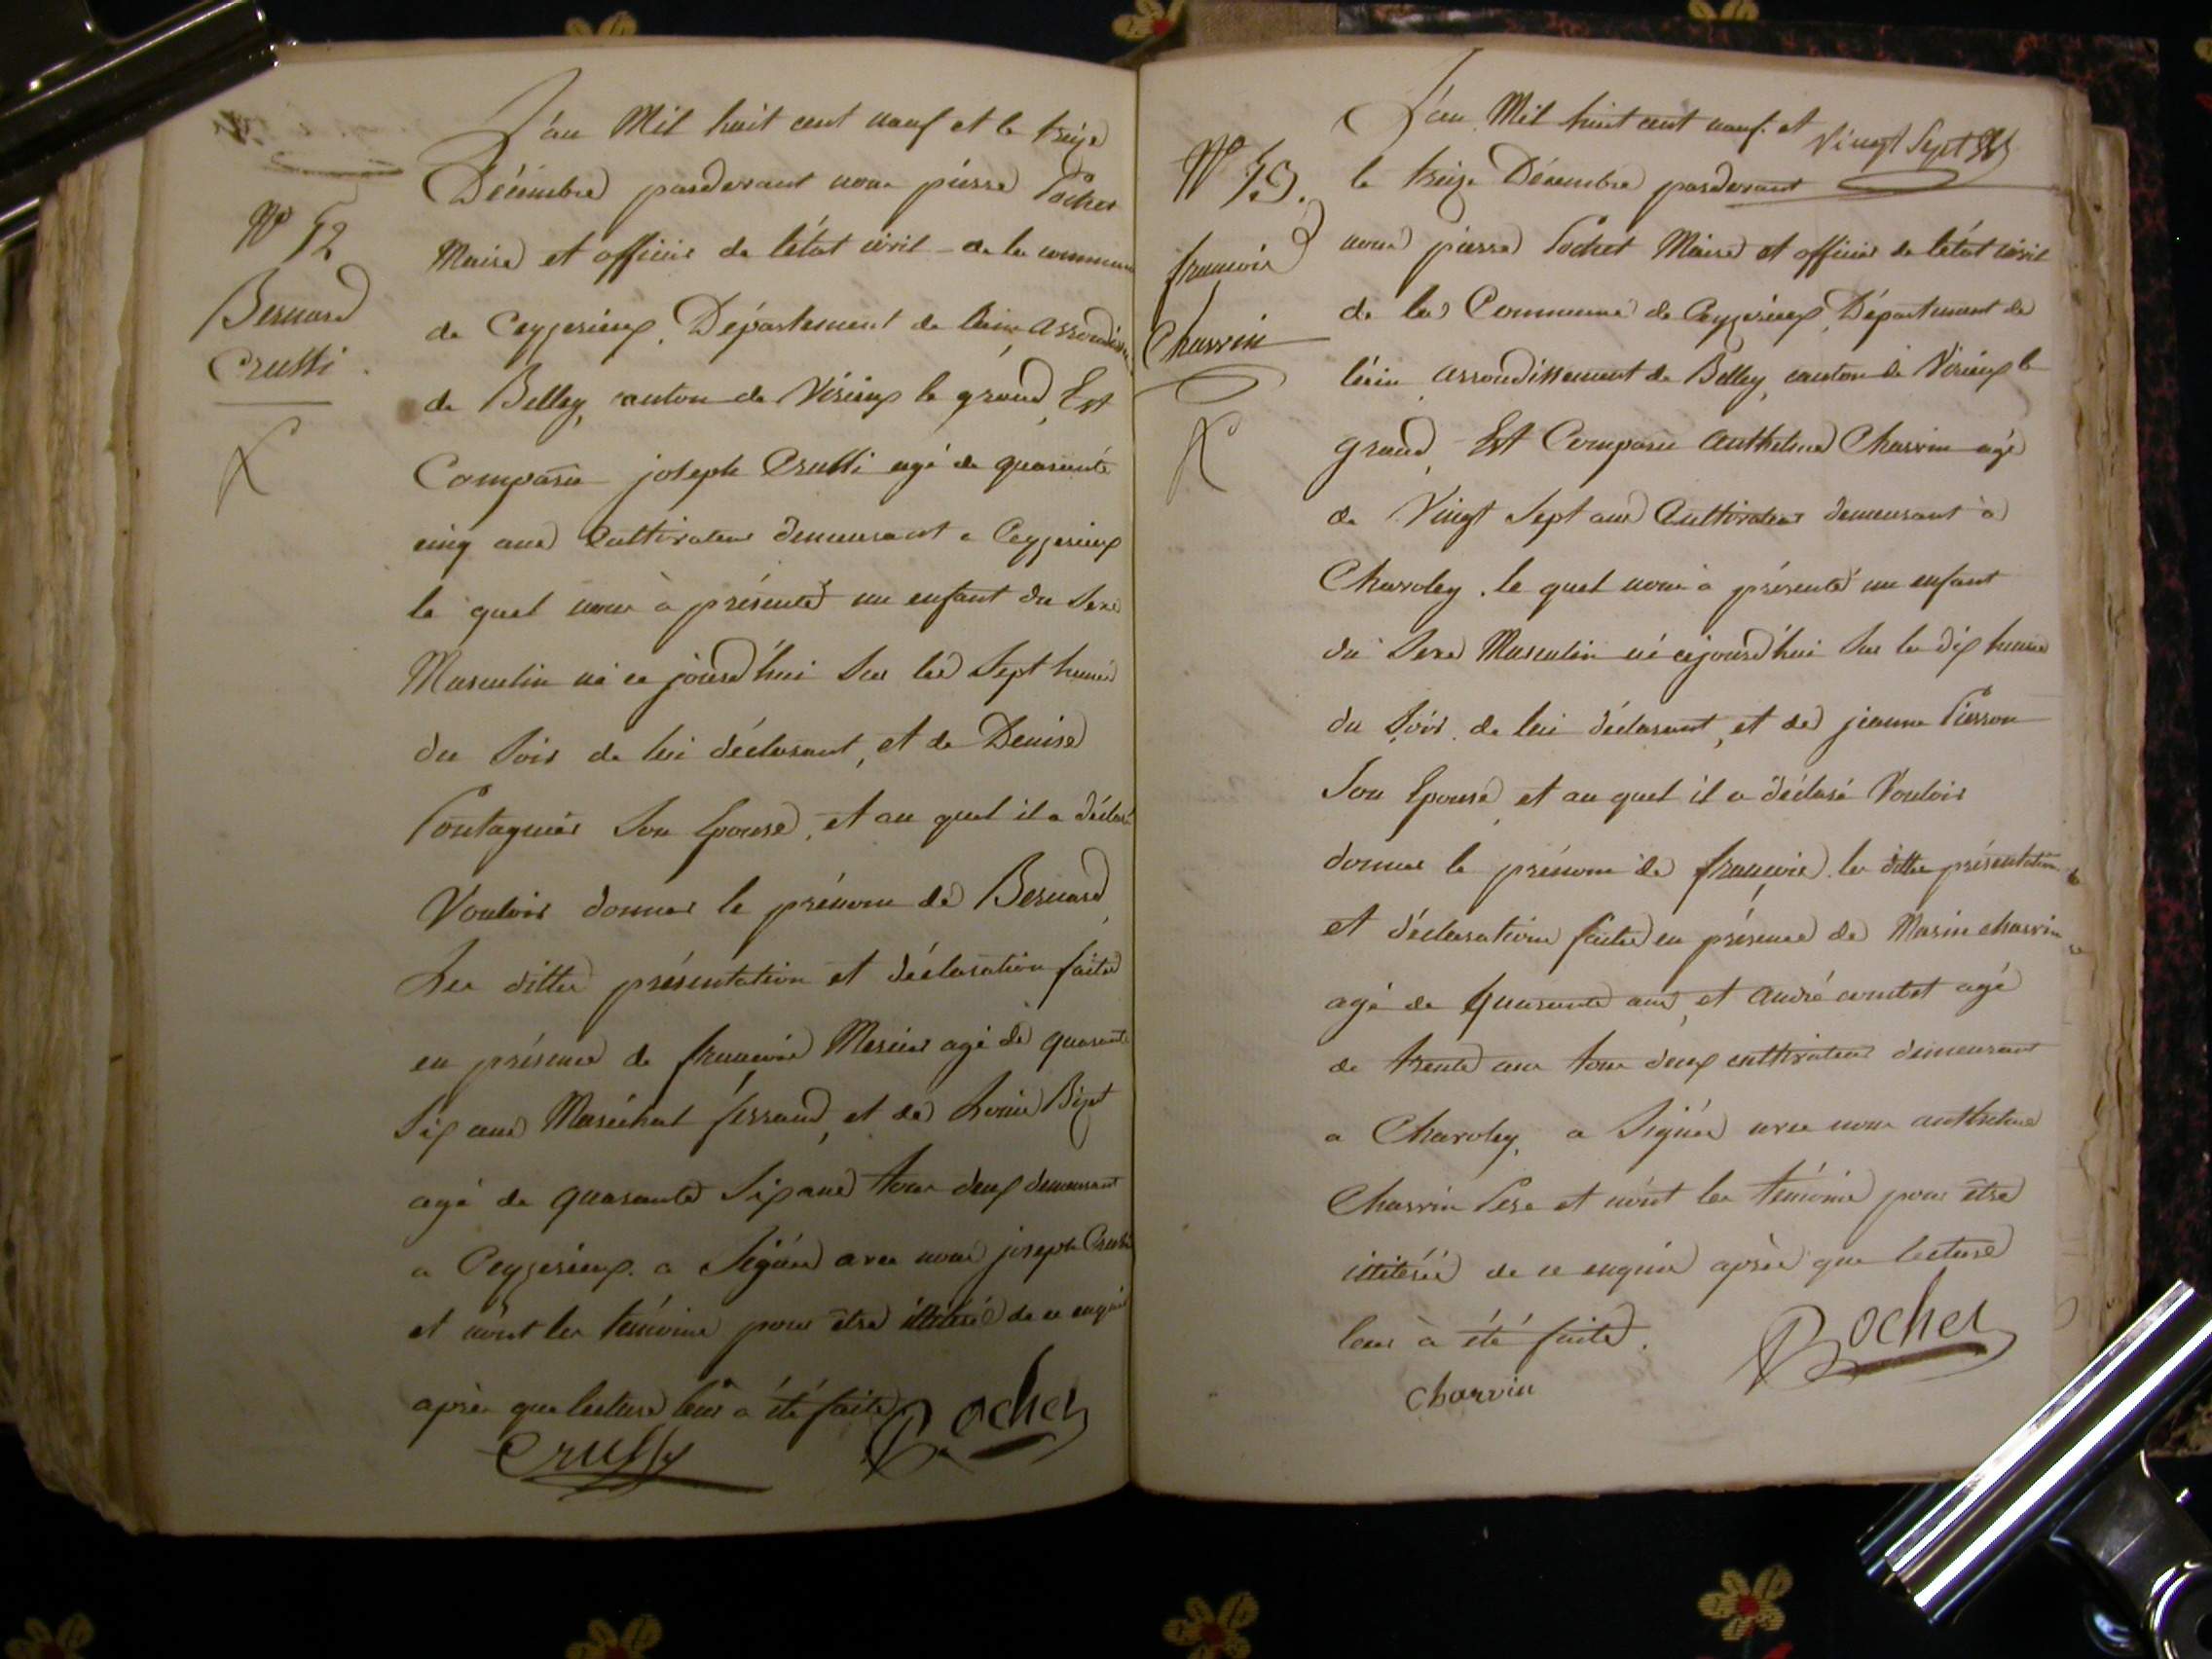 L'an Mil huit cent nauf et le treize
Décembre pardevant nous pierre Pochet
N° 52
Maire et officier de l'état civil de la commune
Bernard
de Ceyzerieux, Département de l'ain, arrondiss
Crussi
de Belley, canton de Virieux le grand, Est
Comparu joseph Crussi agé de quarante
cinq ans Cultivateur demeurant a Ceyzerieux
le quel nous à présenté un enfant du Sexe
Masculin né ce jourd'hui Sur les Sept heures
du Soir de lui déclarant, et de Denise
Pontagnier Son Epouse, et au quel il a déclaré
Vouloir donner le prénom de Bernard,
Les dittes présentation et déclaration faites
en présence de françois Mercier agé de quarante
Six ans Maréchal ferrand, et de Louis Bizet
agé de quarante Six ans tous deux demeurant
a Ceyzerieux. a Signée avec nous joseph Crussi
et nont les témoins pour être illitéré de ce enquis
après que lecture leur à été faite
Crussy Pochet
L'an Mil huit cent nauf. et Vingt Sept
N° 53.
le treize Décembre pardevant
nous pierre Pochet Maire et officier de l'état civil
françois
de la Commune de Ceyzerieux, Département de
Charvin
l'ain arrondissement de Belley, canton de Virieux le
grand, Est Comparu Anthelme Charvin agé
de Vingt Sept ans Cultivateur demeurant à
Charoley. le quel nous à présenté un enfant
du Sexe Masculin né cejourd'hui Sur les dix heures
du Soir de lui déclarant, et de jeanne Pierron
Son Epouse, et au quel il a déclaré Vouloir
donner le prénom de françois. les dittes présentation
et déclarations faites en présence de Marin charvin
agé de quarante ans, et André comtet agé
de trente ans tous deux cultivateur demeurant
a Charoley, a Signée avec nous anthelme
Charvin Pere et nont les témoins pour être
illitérés de ce enquis après que lecture
leur à été faite.
Pochet
charvin